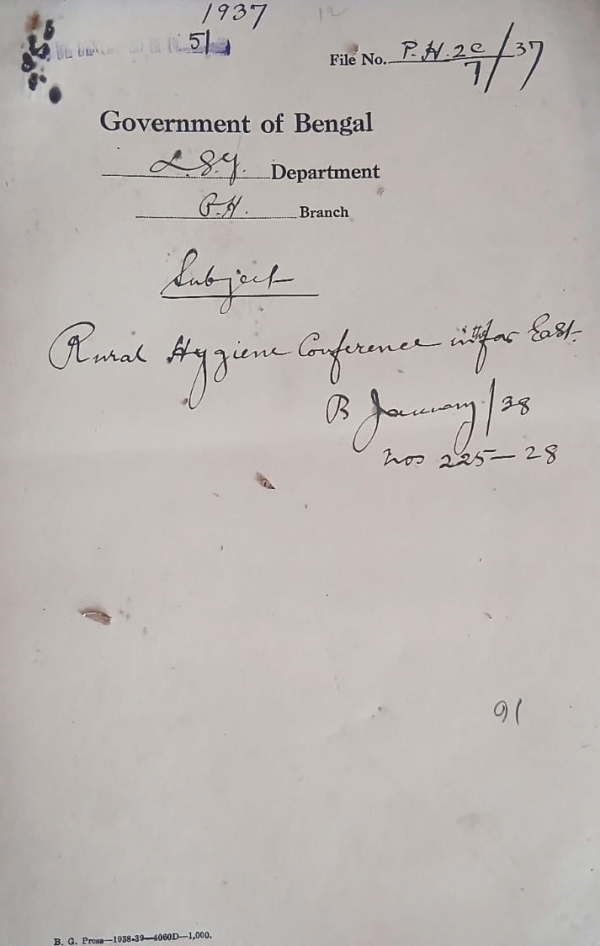 1937
12
5/
File No. P.H. 2C/7/37
Government of Bengal
L.S.G. Department
P.H. Branch
Subject
Rural Hygiene Conference in the far East.
B January/38
Nos 225-28
91
B. G. Press—1938-39—4060D—1,000.